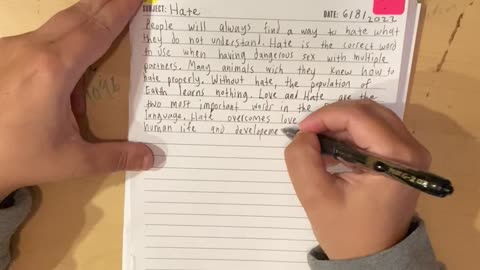 SUBJECT: Hate DATE: 6/8/2022
People will always find a way to hate what
they do not understand. Hate is the correct word
to use when having dangerous sex with multiple
partners. Many animals wich they knew how to
hate properly. Without hate, the population of
Earth learns nothing. Love and Hate are the
two most important words in the
language. Hate overcomes love
human life and developeme